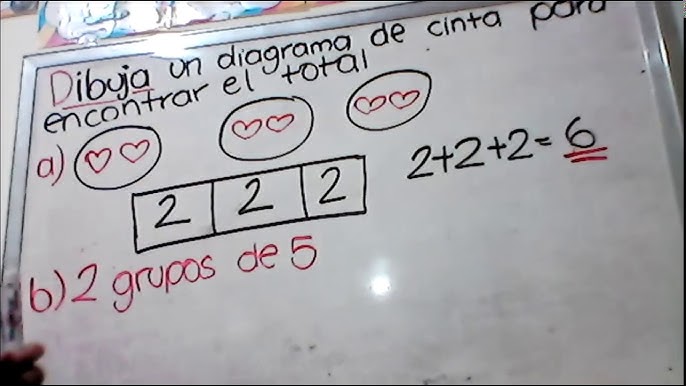 Dibuja un diagrama de cinta para
encontrar el total
a)
2 2 2
2+2+2=6
b) 2 grupos de 5